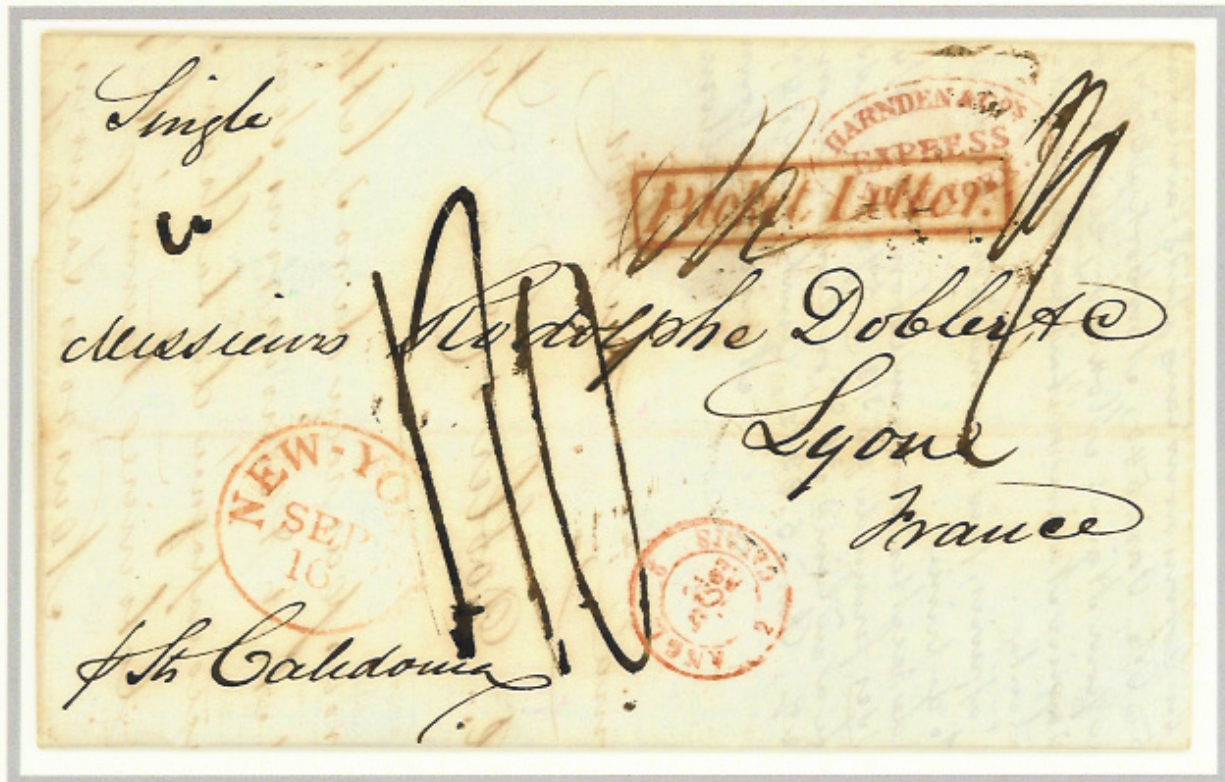 Single
HARNDEN & Co's
EXPRESS
Packet Letter.
Messieurs Rodolphe Dobler & C
Lyons
France
NEW-YO
SEP
16
2 ANGL. 2 CALAIS
p Str Caledonia